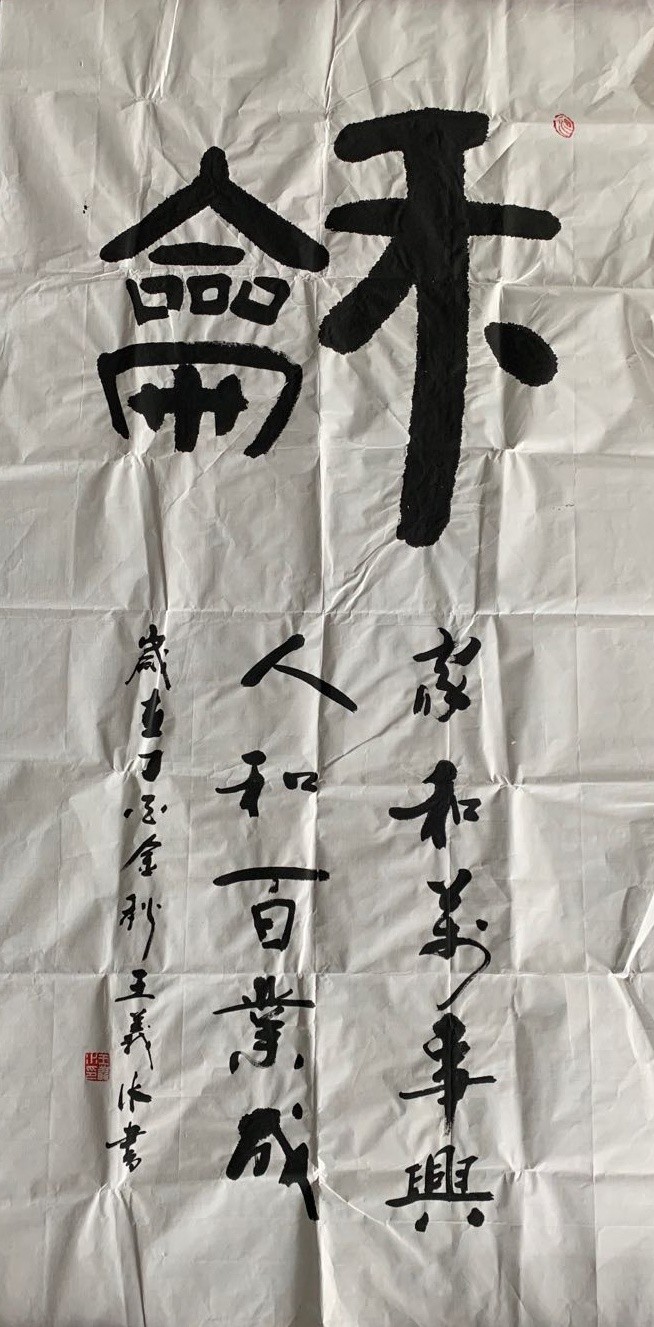 龢
家和萬事興
人和百業成
歲在丁酉金秋王義書